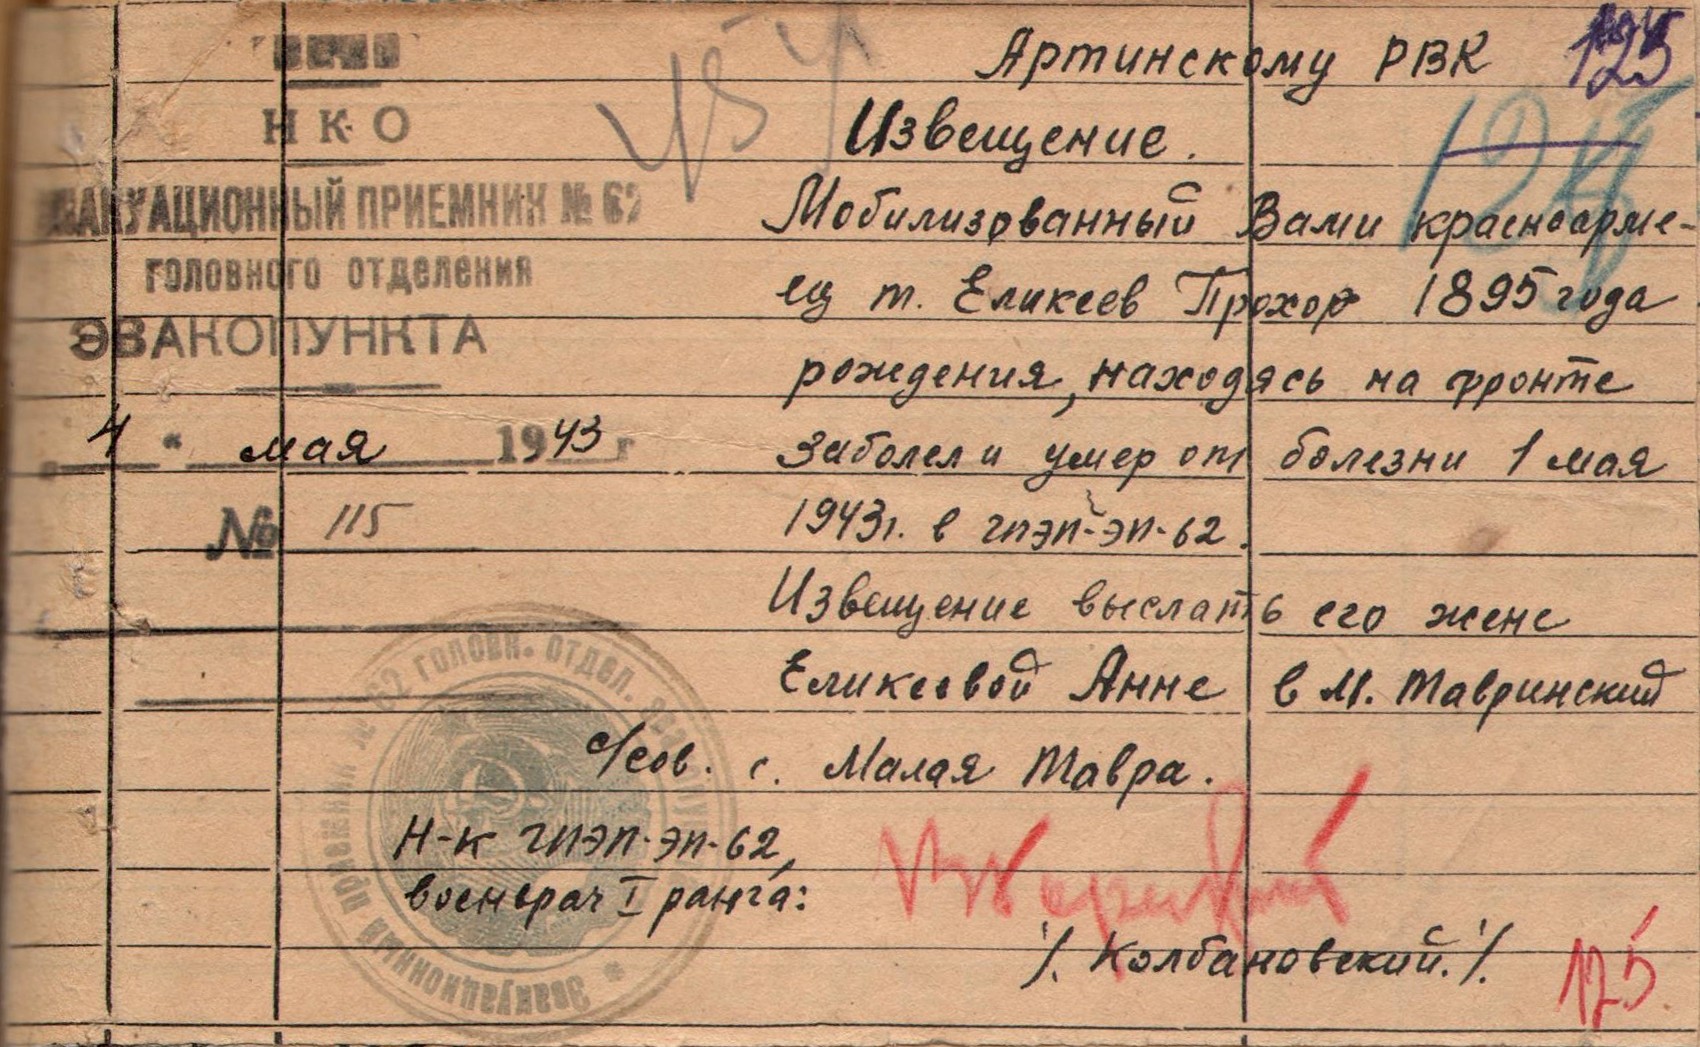 НКО
ЭВАКУАЦИОННЫЙ ПРИЕМНИК № 62
ГОЛОВНОГО ОТДЕЛЕНИЯ
ЭВАКОПУНКТА
4 " мая 1943 г
№ 115
Артинскому РВК 125
Извещение.
Мобилизованный Вами красноарме-
ец т. Еликеев Прохор 1895 года
рождения, находясь на фронте
заболел и умер от болезни 1 мая
1943г. в ГПЭП-ЭП-62.
Извещение выслать его жене
Еликеевой Анне в М. Тавринский
с/сов. с. Малая Тавра.
Н-к ГПЭП-ЭП-62,
военврач I ранга:
/. Колбановский. /.
125
Эвакуационный приемник № 62 головн. отдел.